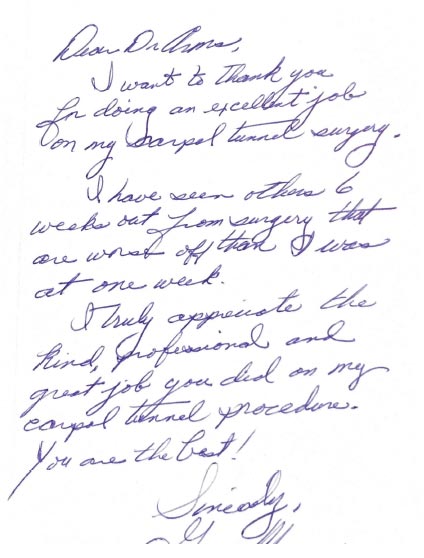 Dear Dr Arms,
I want to thank you
for doing an excellent job
on my carpal tunnel surgery.
I have seen others 6
weeks out from surgery that
are worse off than I was
at one week.
I truly appreciate the
kind, professional and
great job you did on my
carpal tunnel procedure.
You are the best!
Sincerely,